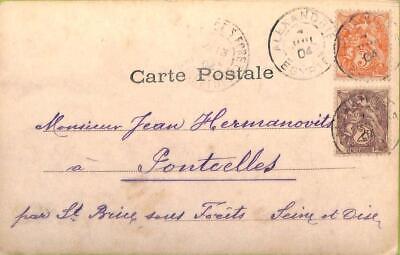 ALEXANDRIE
04
EGYPTE
Carte Postale
Monsieur Jean Hermanovits
à
Pontcelles
par St Brice sous Forêts Seine et Oise